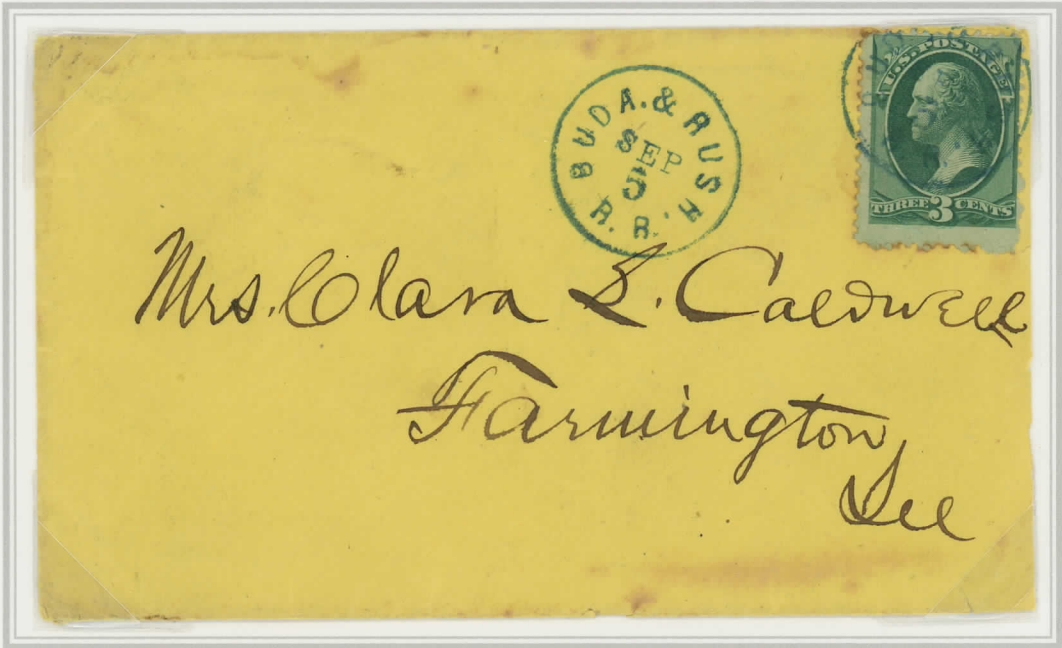 BUDA. & RUSH
SEP
5
R. R.
U.S. POSTAGE
THREE 3 CENTS
Mrs. Clara L. Caldwell
Farmington,
Ill